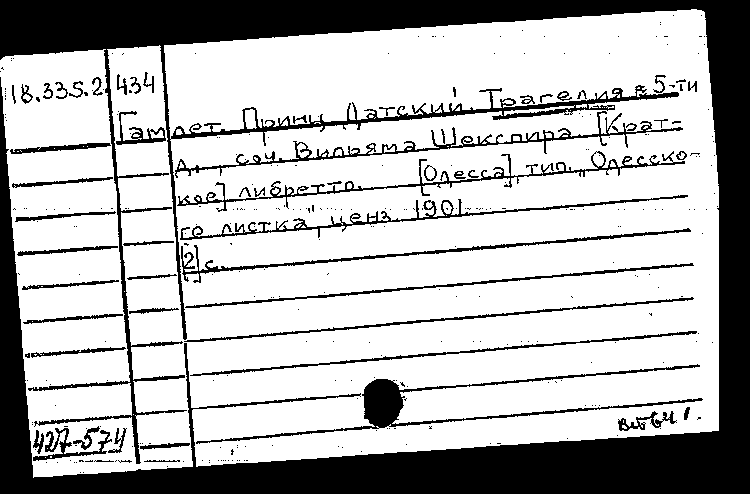 18.335.2.434
Гамлет. Принц Датский. Трагедия в 5-ти
д., соч. Вильяма Шекспира. [Крат-
кое] либретто. [Одесса], тип. „Одесско-
го листка", ценз. 1901.
[2] с.
427-574